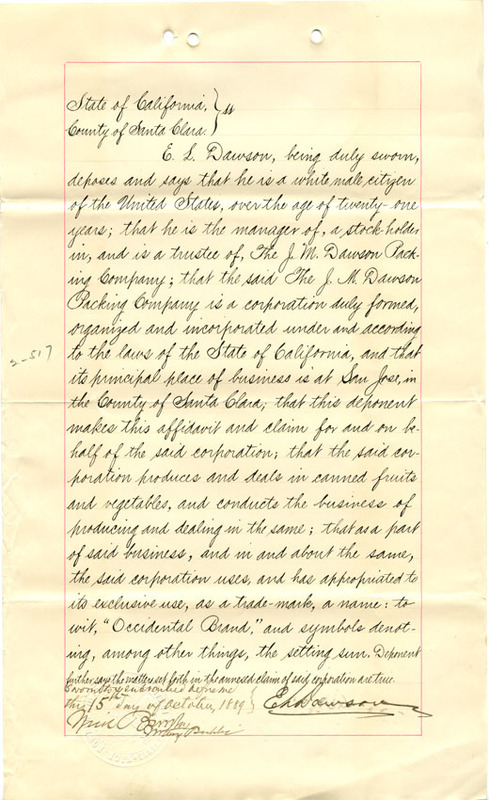 State of California, } ss
County of Santa Clara. }
E. L. Dawson, being duly sworn,
deposes and says that he is a white male citizen
of the United States, over the age of twenty-one
years; that he is the manager of, a stock-holder
in, and is a trustee of, The J. M. Dawson Pack-
ing Company; that the said The J. M. Dawson
Packing Company is a corporation duly formed,
organized and incorporated under and according
to the laws of the State of California, and that
its principal place of business is at San Jose, in
the County of Santa Clara; that this deponent
makes this affidavit and claim for and on be-
half of the said corporation; that the said cor-
poration produces and deals in canned fruits
and vegetables, and conducts the business of
producing and dealing in the same; that as a part
of said business, and in and about the same,
the said corporation uses, and has appropriated to
its exclusive use, as a trade-mark, a name: to
wit, "Occidental Brand," and symbols denot-
ing, among other things, the setting sun. Deponent
further says the matters set forth in the annexed claim of said corporation are true.
Sworn to and subscribed before me
this 15th day of October, 1889 } E L Dawson
Notary Public
2-517